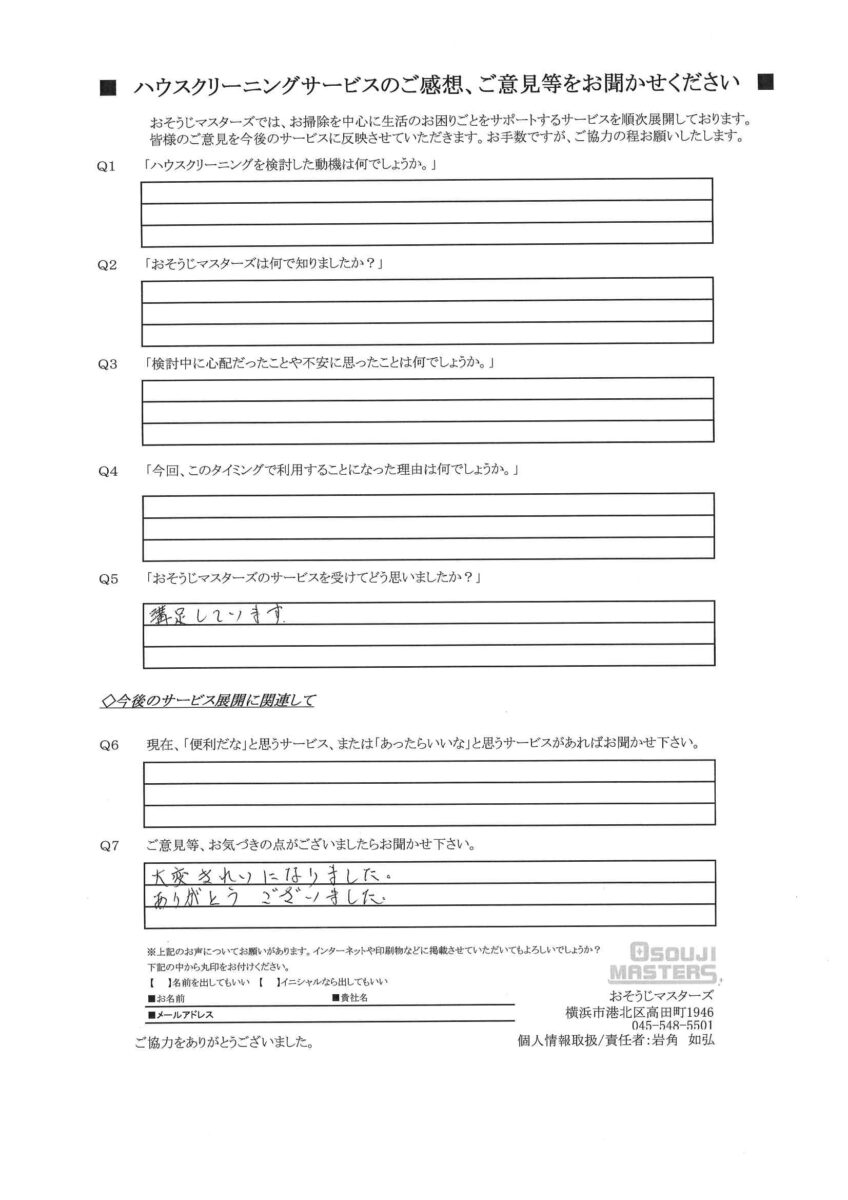 ■ ハウスクリーニングサービスのご感想、ご意見等をお聞かせください ■
おそうじマスターズでは、お掃除を中心に生活のお困りごとをサポートするサービスを順次展開しております。
皆様のご意見を今後のサービスに反映させていただきます。お手数ですが、ご協力の程お願いしたします。
Q1 「ハウスクリーニングを検討した動機は何でしょうか。」
Q2 「おそうじマスターズは何で知りましたか？」
Q3 「検討中に心配だったことや不安に思ったことは何でしょうか。」
Q4 「今回、このタイミングで利用することになった理由は何でしょうか。」
Q5 「おそうじマスターズのサービスを受けてどう思いましたか？」
満足しています.
◇今後のサービス展開に関連して
Q6 現在、「便利だな」と思うサービス、または「あったらいいな」と思うサービスがあればお聞かせ下さい。
Q7 ご意見等、お気づきの点がございましたらお聞かせ下さい。
大変きれいになりました。
ありがとう ございました.
※上記のお声についてお願いがあります。インターネットや印刷物などに掲載させていただいてもよろしいでしょうか？
下記の中から丸印をお付けください。
【 】名前を出してもいい 【 】イニシャルなら出してもいい
■お名前 ■貴社名
■メールアドレス
ご協力をありがとうございました。
OSOUJI
MASTERS
おそうじマスターズ
横浜市港北区高田町1946
045-548-5501
個人情報取扱/責任者:岩角 如弘